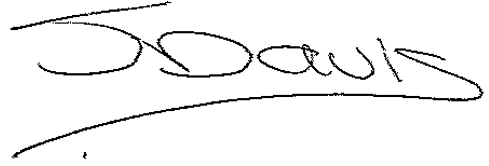 J Davis